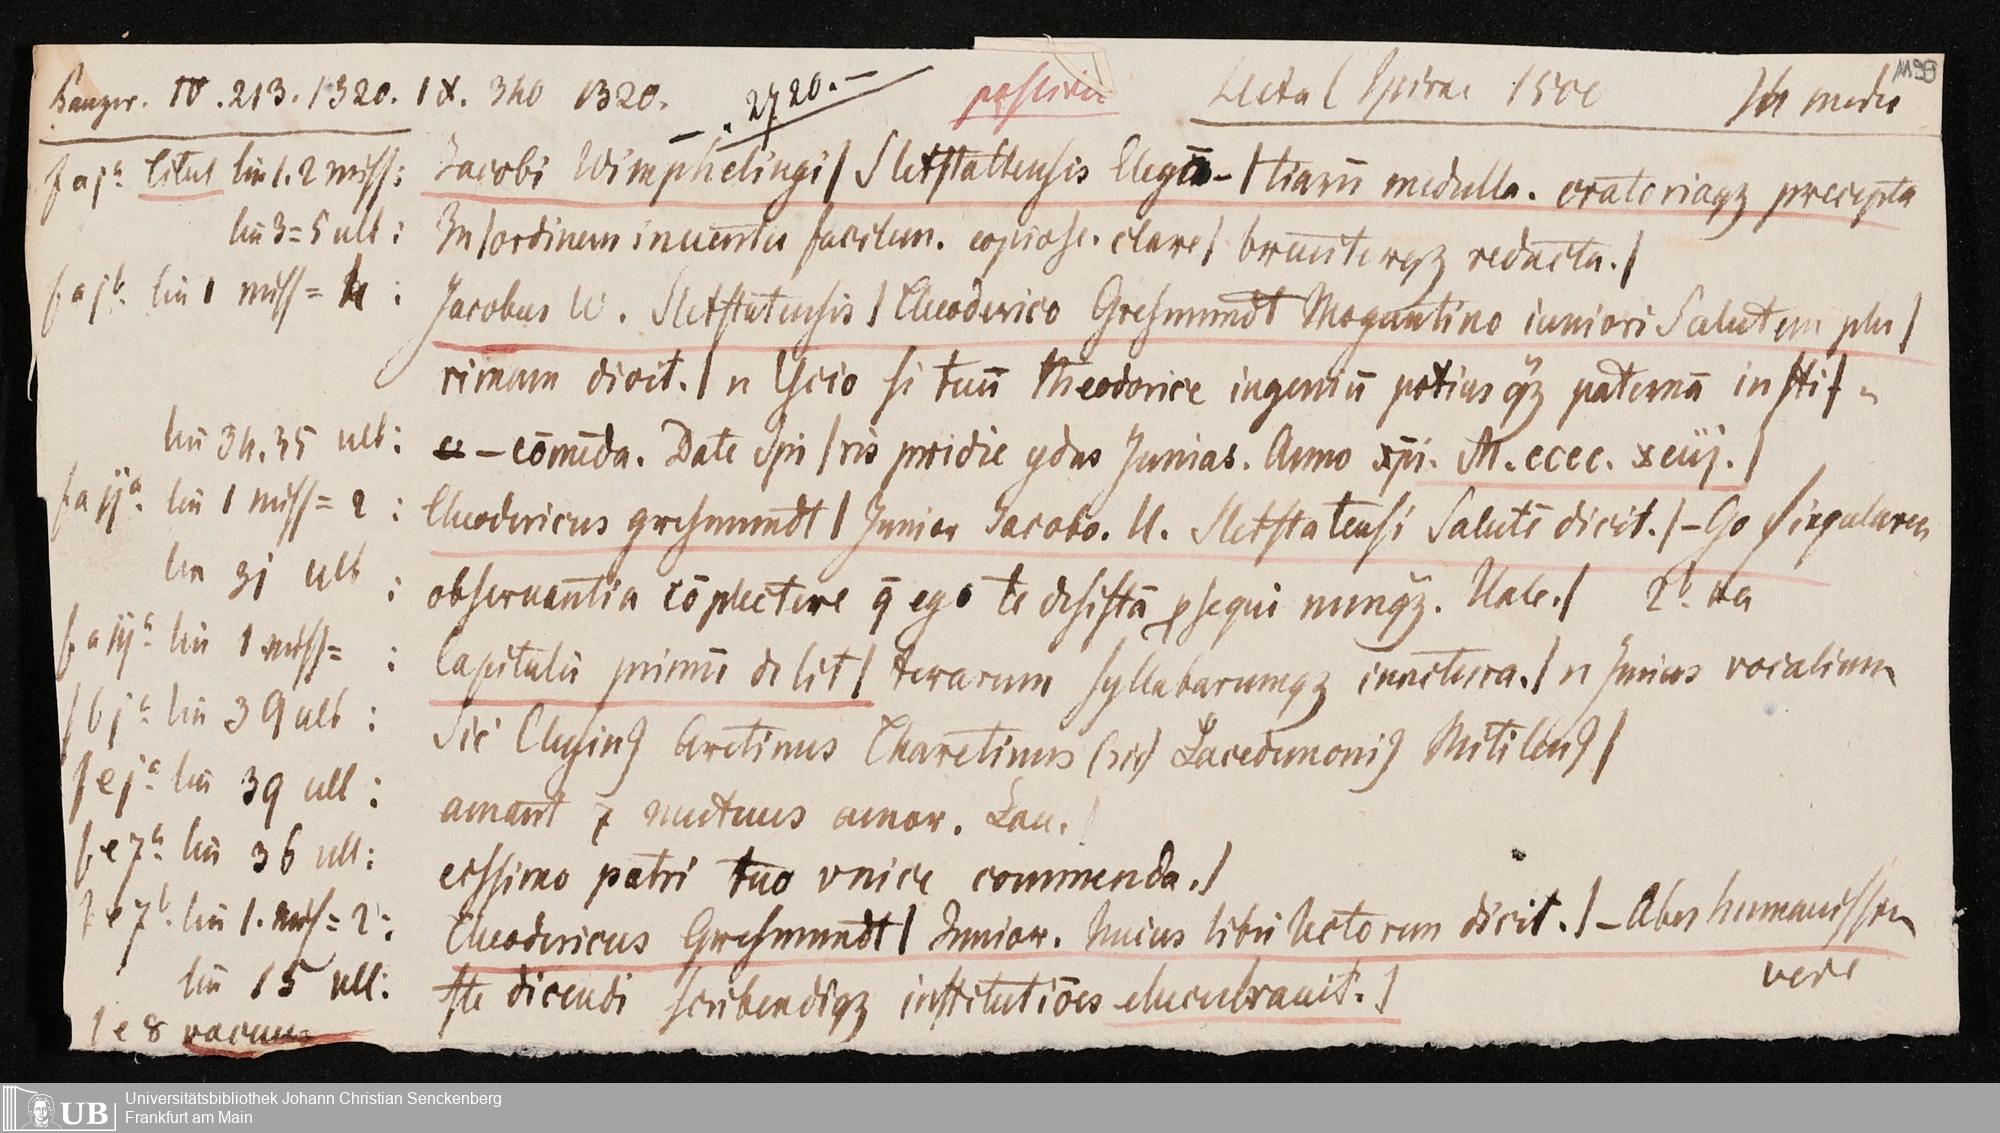 Panzer. IV .213.1320. IX. 340 1320. 2720.— Spirae 150 In medio 1190
f aj a. titul lin 1.2 miss: Jacobi Wimphelingi/ Sletstattensis Elegā-/tiarū medulla. oratoriaqz precepta
lin 3=5 ult: In/ordinem inuentu facilem. copiose. clare/ breuiterqz redacta./
f aj b. lin 1 miss= : Jacobus W. Sletstatensis/ Theoderico Gresmundt Moguntino iuniori Salutem plu/
rimam dicit./ n Scio si tuū Theodorice ingeniū potius qz paternā insti/-
lin 34.35 ult: -cōmēda. Date Spi/ris pridie ydus Junias. Anno xpi. M.cccc. xciij./
f a ij a. lin 1 miss=2: Theodericus gresmundt/ Junior Jacobo. W. Sletstatensi Salutē dicit./-Go singulares
lin 31 ult : obseruantia cōplectere q̄ ego te desistā psequi nunqz. Uale./ 2b.
f a iij a lin 1 miss= : Capitulū primū de lit/ terarum syllabarumqz iunctura./ n Junius vocalium
f bj a. lin 39 ult : Sic Clusin9 Aretinus Tharetinus (sic) Lacedemoni9 Mitilen9/
f ej a. lin 39 ult : amant 7 mutuus amor. Lau./
f e7 a. lin 36 ult: cissimo patri tuo vnice commenda./
f e7 b. lin 1. miss=2: Theodericus Gresmundt/ Junior. huius libri lectorem dicit./-Aber humanissim
lin 15 ult: ste dicendi scribendiqz institutiōes elucubrauit./ vere
f e 8 vacuus
UB Universitätsbibliothek Johann Christian Senckenberg
Frankfurt am Main